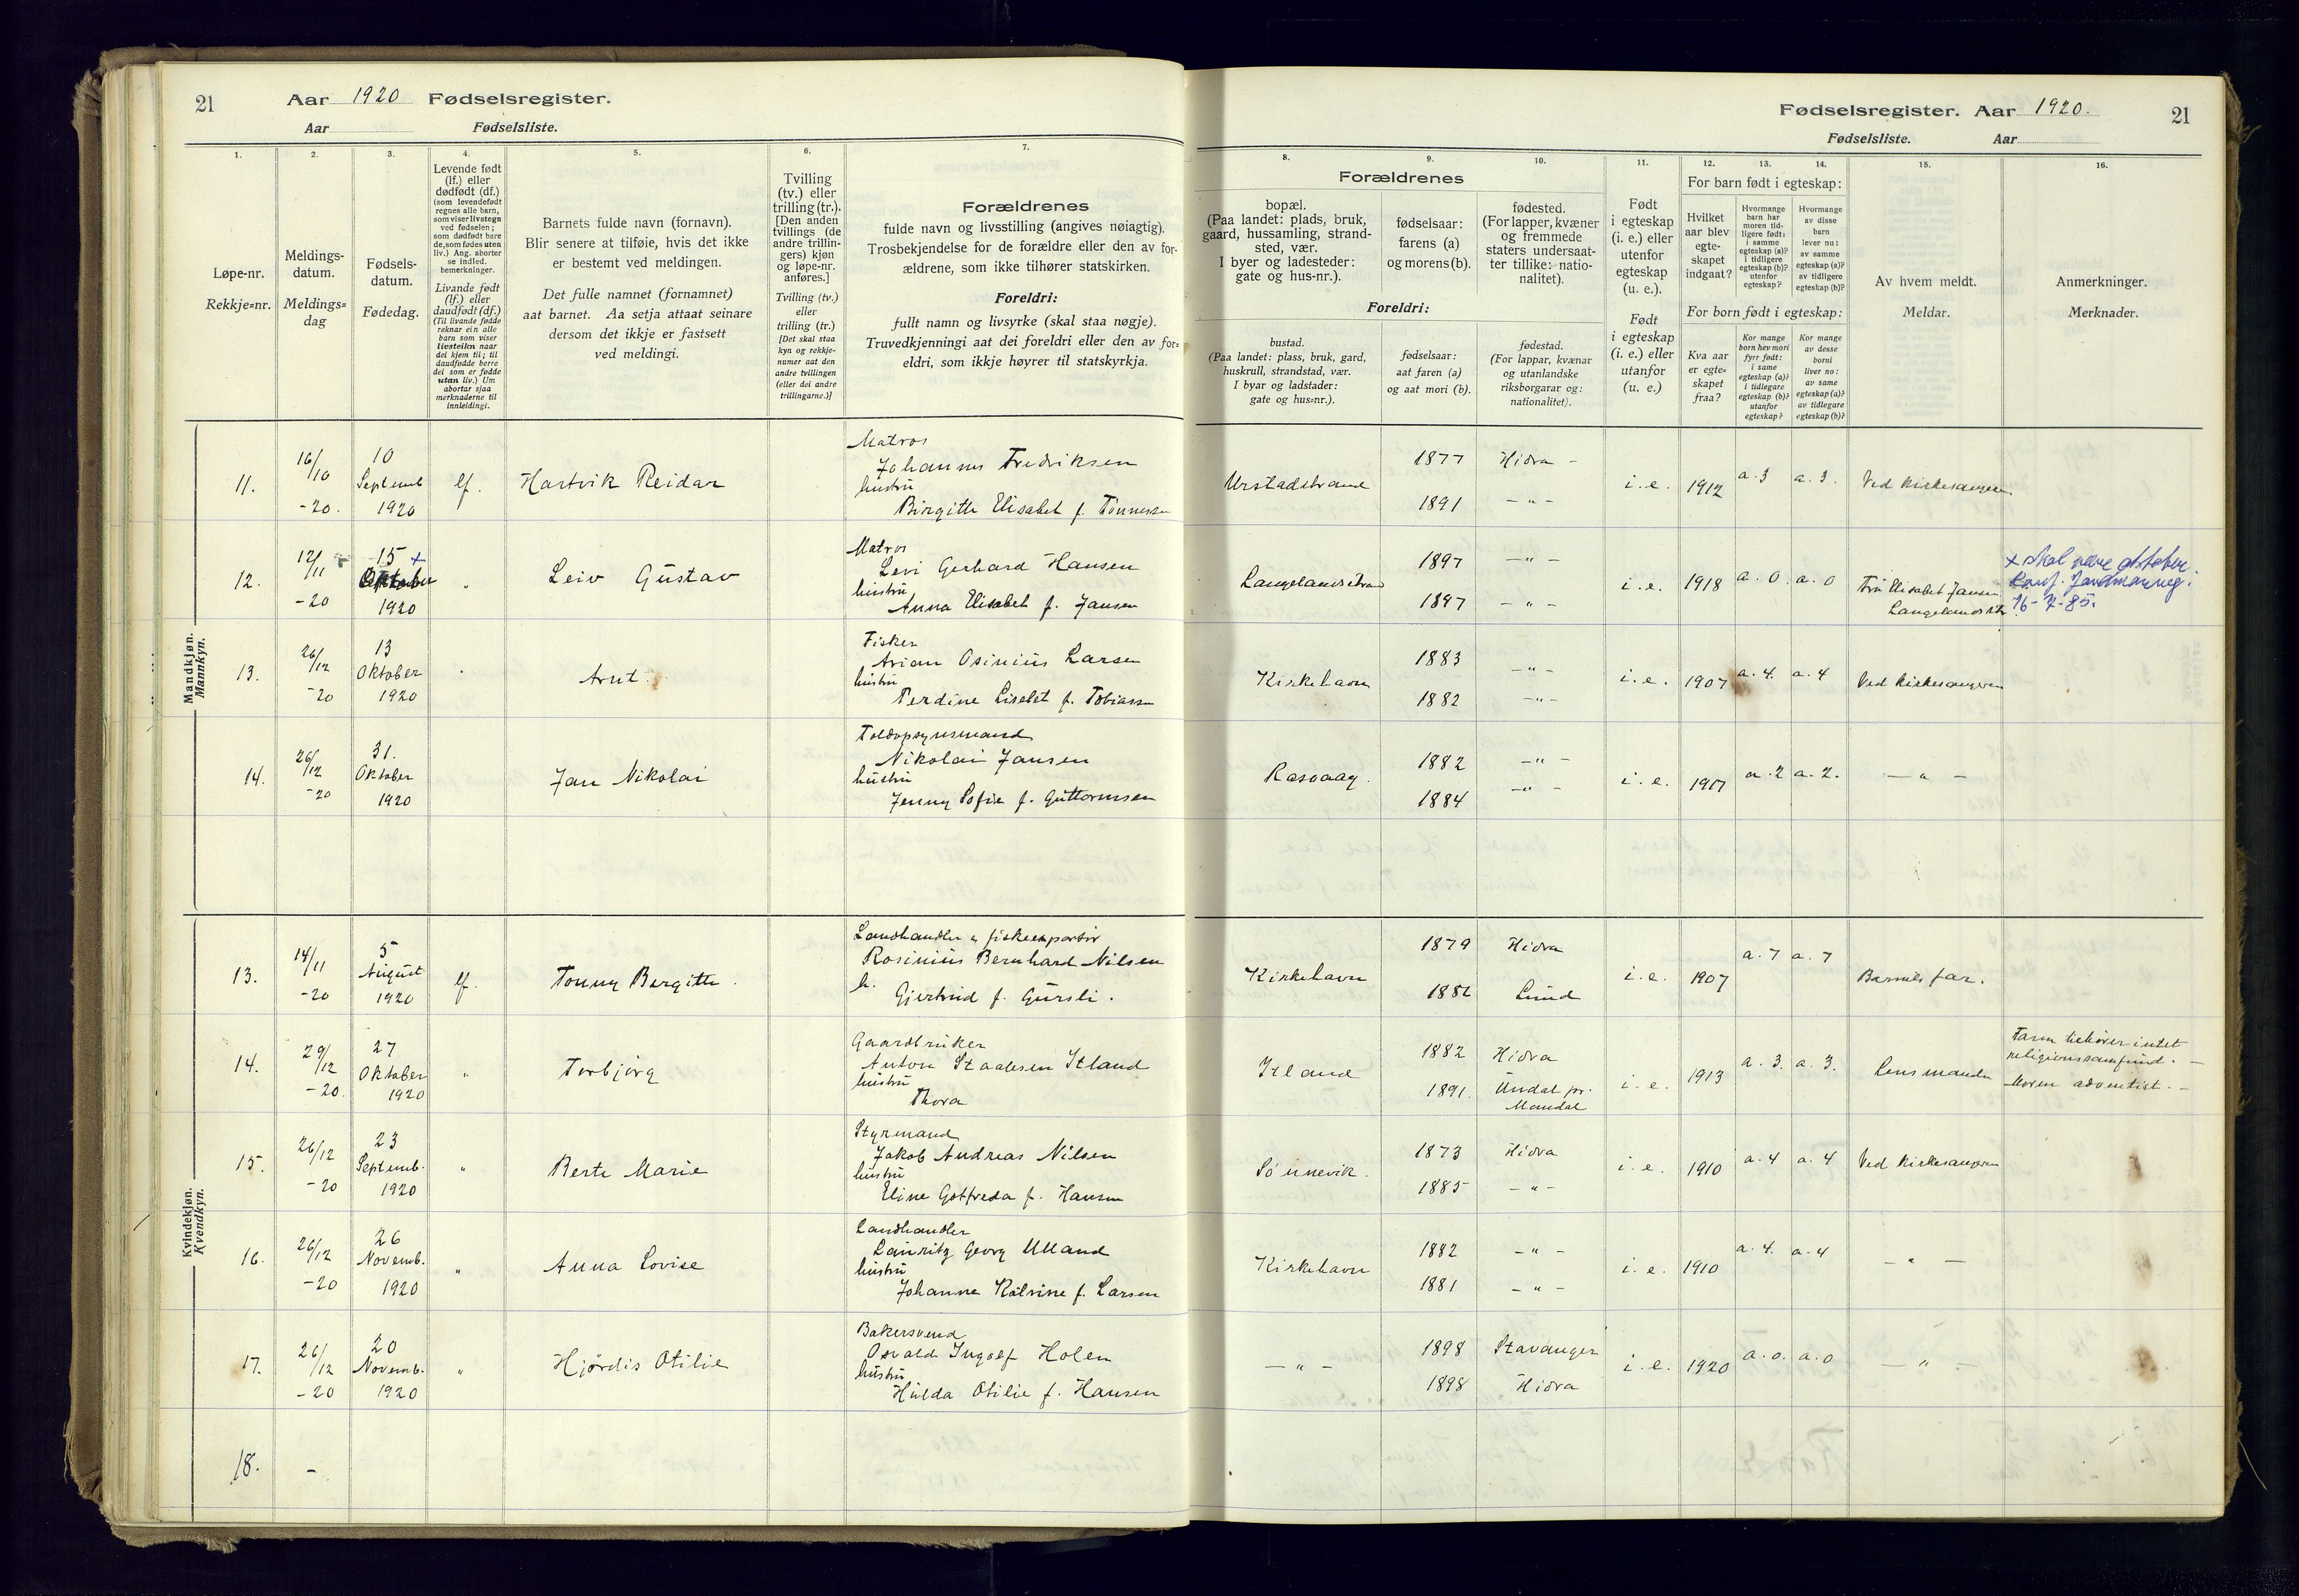 21 Aar 1920 Fødselsregister.
Aar Fødselsliste.
1. 2. 3. 4. 5. 6. 7.
Løpe-nr.
Rekkje=nr.
Meldings-
datum.
Meldings=
dag
Fødsels-
datum.
Fødedag.
Levende født
(lf.) eller
dødfødt (df.)
(som levendefødt
regnes alle barn,
som viser livstegn
ved fødselen;
som dødfødt bare
de, som fødes uten
liv.) Ang. aborter
se indled.
bemerkninger.
Livande født
(lf.) eller
daudfødt (df.)
(Til livande fødde
reknar ein alle
barn som viser
livsteikn naar
dei kjem til; til
daudfødde berre
dei som er fødde
utan liv.) Um
abortar sjaa
merknaderne til
innleidingi.
Barnets fulde navn (fornavn).
Blir senere at tilføie, hvis det ikke
er bestemt ved meldingen.
Det fulle namnet (fornamnet)
aat barnet. Aa setja attaat seinare
dersom det ikkje er fastsett
ved meldingi.
Tvilling
(tv.) eller
trilling (tr.).
[Den anden
tvillings (de
andre trillin-
gers) kjøn
og løpe-nr.
anføres.]
Tvilling (tv.)
eller
trilling (tr.)
[Det skal staa
kyn og rekkje-
numer aat den
andre tvillingen
(eller dei andre
trillingarne.)]
Forældrenes
fulde navn og livsstilling (angives nøiagtig).
Trosbekjendelse for de forældre eller den av for-
ældrene, som ikke tilhører statskirken.
Foreldri:
fullt namn og livsyrke (skal staa nøgje).
Truvedkjenningi aat dei foreldri eller den av for=
eldri, som ikkje høyrer til statskyrkja.
Mandkjøn.
Mannkyn.
11. 16/10 -20. 10 Septemb 1920 lf. Hartvik Reidar
Matros
Johannes Fredriksen
hustru
Birgitte Elisabet f. Tønnessen
12. 12/11 -20 15 + Oktober 1920 " Leiv Gustav
Matros
Levi Gerhard Hansen
hustru
Anna Elisabet f. Jansen
13. 26/12 -20 13 Oktober 1920 " Arnt
Fisker
Arian Osinius Larsen
hustru
Perdine Lisebet f. Tobiassen
14. 26/12 -20 31. Oktober 1920 Jan Nikolai
Toldopsynsmand
Nikolai Jansen
hustru
Jenny Sofie f. Guttormsen
Kvindekjøn.
Kvendkyn.
13. 14/11 -20 5 August 1920 lf. Tonny Bergitte.
Landhandler & fiskeexportør
Rosinius Bernhard Nilsen
h.
Gjertrud f. Gursli.
14. 29/12 -20. 27 Oktober 1920 " Torbjörg
Gaardbruker
Anton Staalesen Itland
hustru
Thora
15. 26/12 -20 23 Septemb. 1920 " Berte Marie
Styrmand
Jakob Andreas Nilsen
hustru
Eline Gotfreda f. Hansen
16. 26/12 -20 26 Novemb. 1920 " Anna Lovise
Landhandler
Lauritz Georg Ulland
hustru
Johanne Katrine f. Larsen
17. 26/12 -20 20 Novemb. 1920 " Hjördis Otilie
Bakersvend
Osvald Ingolf Holen
hustru
Hulda Otilie f. Hansen
18. -
Fødselsregister. Aar 1920. 21
Fødselsliste. Aar
8. 9. 10. 11. 12. 13. 14. 15. 16.
Forældrenes
bopæl.
(Paa landet: plads, bruk,
gaard, hussamling, strand-
sted, vær.
I byer og ladesteder:
gate og hus-nr.).
fødselsaar:
farens (a)
og morens (b).
fødested.
(For lapper, kvæner
og fremmede
staters undersaat-
ter tillike: natio-
nalitet).
Foreldri:
bustad.
(Paa landet: plass, bruk, gard,
huskrull, strandstad, vær.
I byar og ladstader:
gate og hus=nr.).
fødselsaar:
aat faren (a)
og aat mori (b).
fødestad.
(For lappar, kvænar
og utanlandske
riksborgarar og:
nationalitet).
Født
i egteskap
(i. e.) eller
utenfor
egteskap
(u. e.).
Født
i egteskap
(i. e.) eller
utanfor
(u. e.)
For barn født i egteskap:
Hvilket
aar blev
egte-
skapet
indgaat?
Hvormange
barn har
moren tid-
ligere født:
i samme
egteskap (a)?
i tidligere
egteskap (b)?
utenfor
egteskap?
Hvormange
av disse
barn
lever nu:
av samme
egteskap (a)?
av tidligere
egteskap (b)?
For born født i egteskap:
Kva aar
er egte=
skapet
fraa?
Kor mange
born hev mori
fyrr født:
i same
egteskap (a)?
i tidlegare
egteskap (b)?
utanfor
egteskap?
Kor mange
av desse
borni
liver no:
av same
egteskap (a)?
av tidlegare
egteskap (b)?
Av hvem meldt.
Meldar.
Anmerkninger.
Merknader.
Urstadstrand 1877 Hidra - i.e. 1912 a. 3 a. 3. Ved kirkesangeren
1891 - " -
Langelandsstrand 1897 - " - i.e. 1918 a. 0. a. 0 Fru Elisabet Jansen
1897 - " - Langelandsstr
+ skal være oktober.
Conf. Jordmorreg.
16-7-85.
Kirkehavn 1883 - " - i.e. 1907 a. 4. a. 4 Ved kirkesangeren
1882 - " -
Rasvaag. 1882 - " - i.e. 1917 a. 2 a. 2. - " -
1884 - " -
Kirkehavn 1879 Hidra i.e. 1907 a. 7 a. 7 Barnets far.
1882 Lund
Itland 1882 Hidra i.e. 1913 a. 3. a. 3. Lensmanden
1891. Undal pr.
Mandal
Faren tilhører intet
religionssamfund. -
Moren adventist. -
Sönnevik. 1873 Hidra i.e. 1910 a. 4 a. 4 Ved kirkesangeren
1885 - " -
Kirkehavn 1882 - " - i.e. 1910 a. 4. a. 4 - " -
1881 - " -
- " - 1898 Stavanger i.e. 1920 a. 0. a. 0 - " -
1898 Hidra